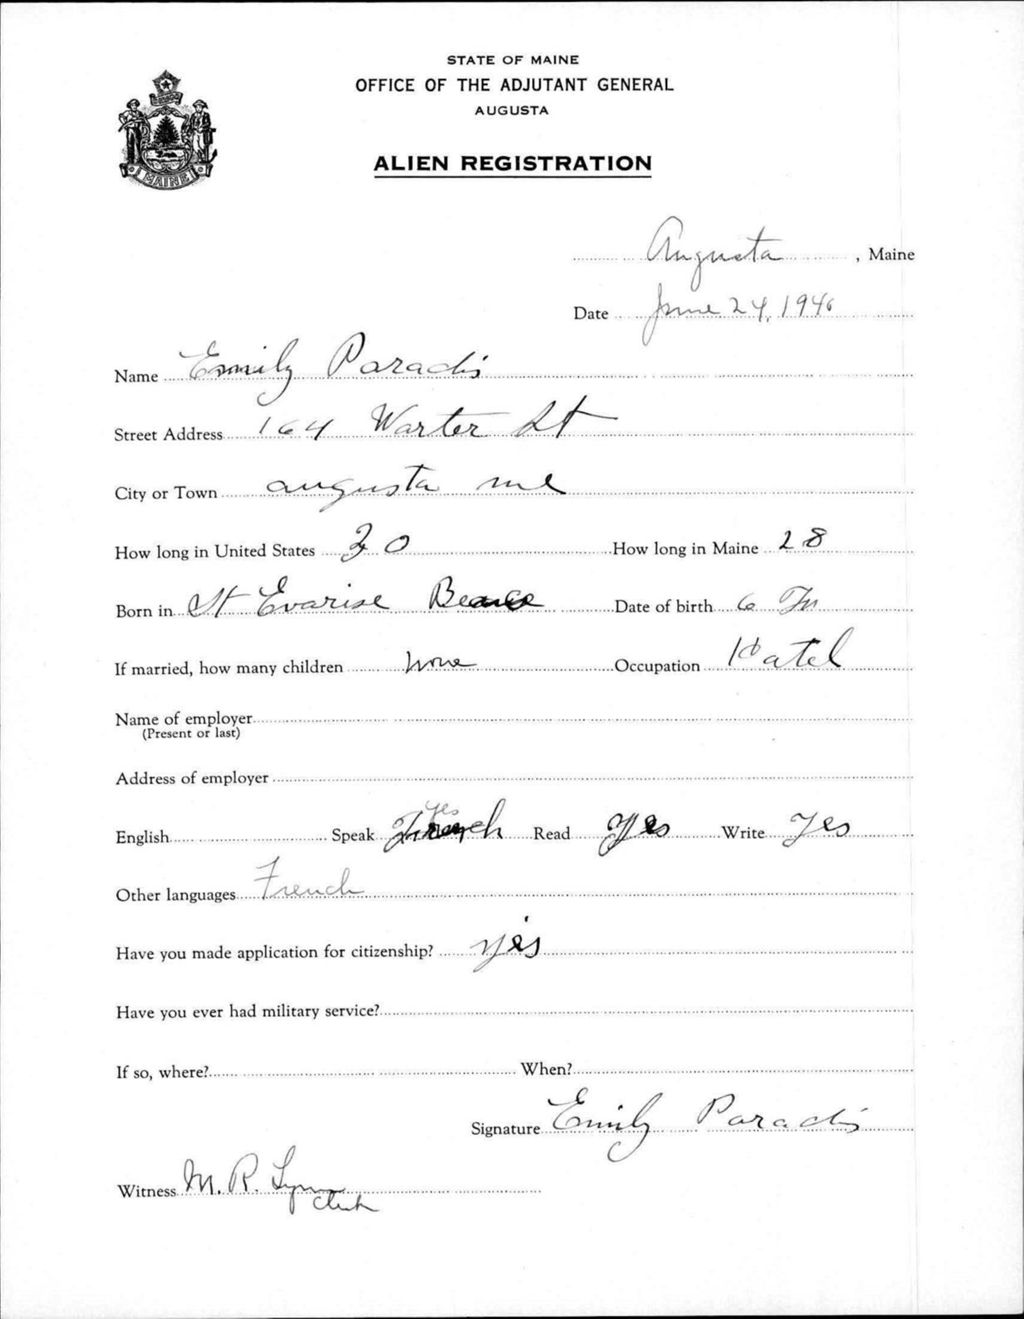 STATE OF MAINE
OFFICE OF THE ADJUTANT GENERAL
AUGUSTA
ALIEN REGISTRATION
MAINE
Augusta, Maine
Date June 24, 1940
Name Emily Paradis
Street Address 164 Warter St
City or Town augusta me
How long in United States 30 How long in Maine 28
Born in St Evarise Beauce Date of birth 6
If married, how many children none Occupation Hatel
Name of employer
(Present or last)
Address of employer
English Speak yes French Read Yes Write Yes
Other languages French
Have you made application for citizenship? yes
Have you ever had military service?
If so, where? When?
Signature Emily Paradis
Witness M. R. Clerk